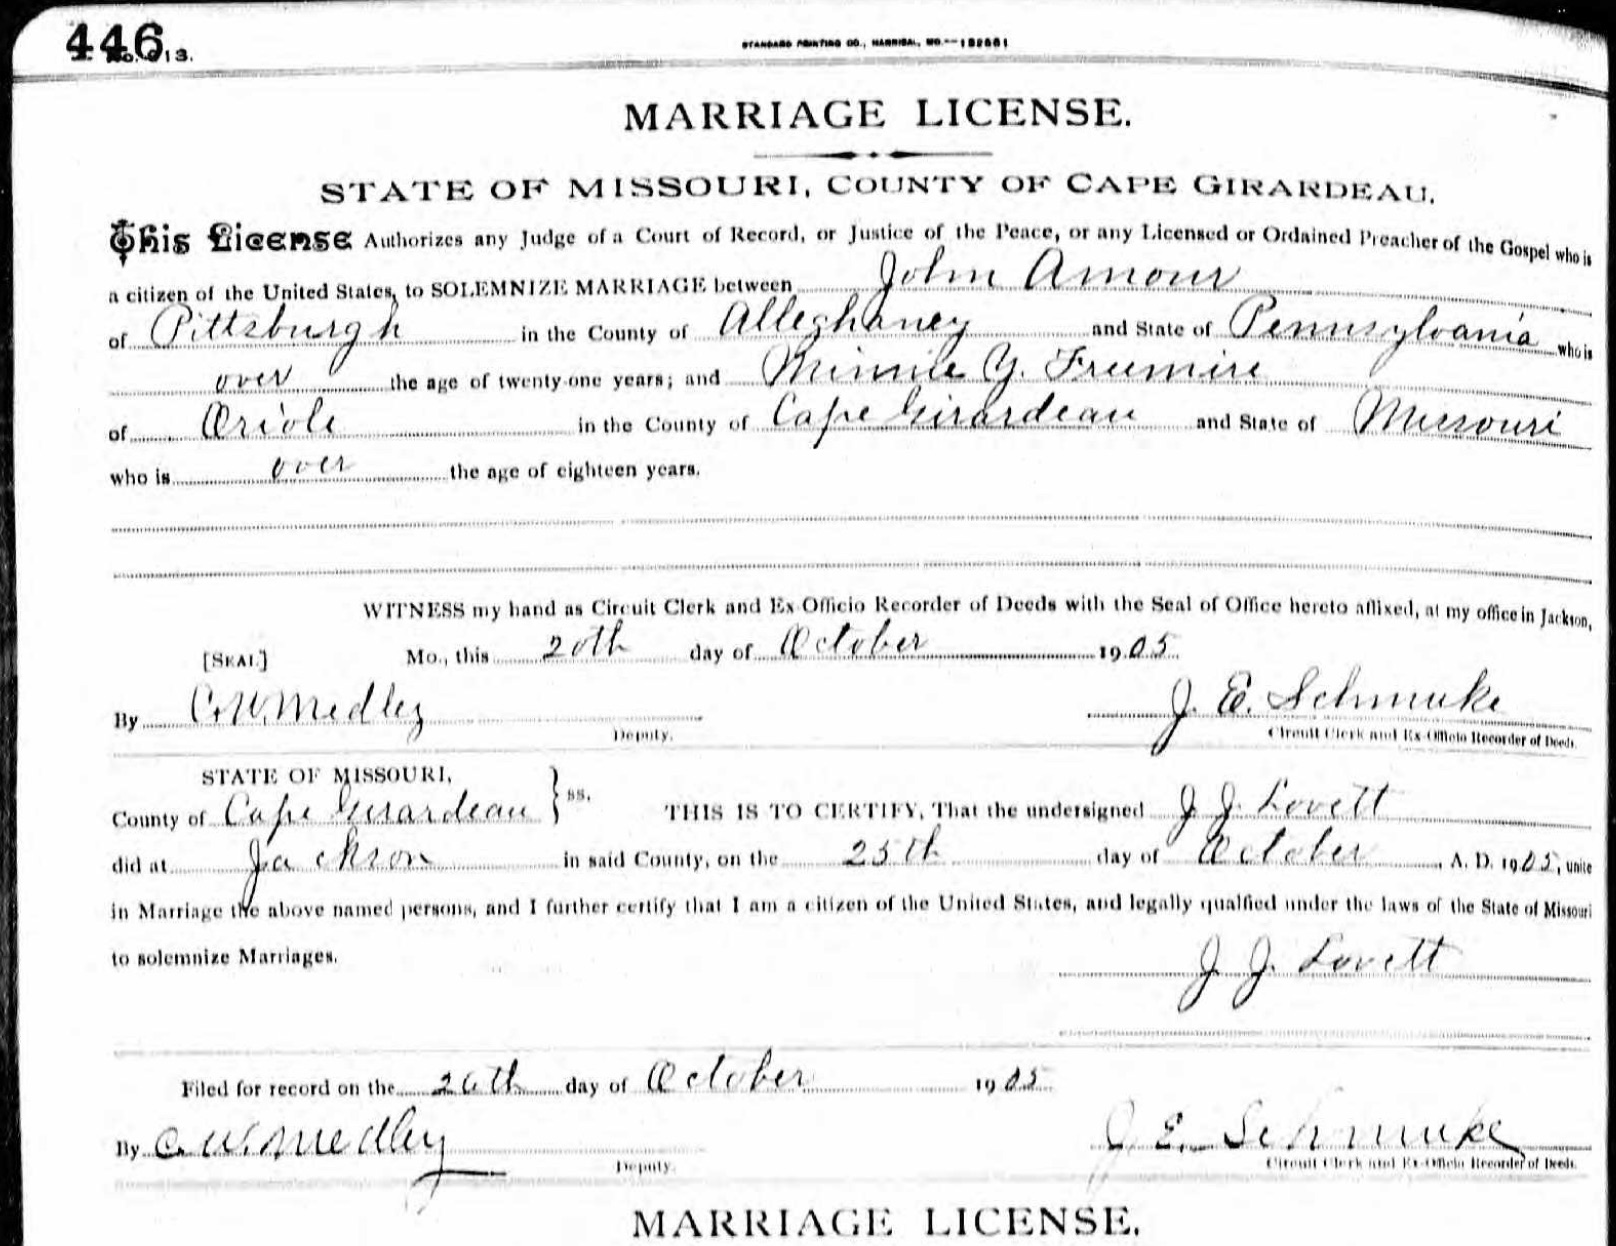 446
No. 13.
STANDARD PRINTING CO., HANNIBAL, MO.
MARRIAGE LICENSE.
STATE OF MISSOURI, COUNTY OF CAPE GIRARDEAU.
This License Authorizes any Judge of a Court of Record, or Justice of the Peace, or any Licensed or Ordained Preacher of the Gospel who is
a citizen of the United States, to SOLEMNIZE MARRIAGE between John Amour
of Pittsburgh in the County of Alleghaney and State of Pennsylvania who is
over the age of twenty-one years; and Minnie Y. Freemire
of Oriole in the County of Cape Girardeau and State of Missouri
who is over the age of eighteen years.
WITNESS my hand as Circuit Clerk and Ex-Officio Recorder of Deeds with the Seal of Office hereto affixed, at my office in Jackson,
[SEAL] Mo., this 20th day of October 1905.
By C. W. Medley J. E. Schmuke
Deputy. Circuit Clerk and Ex-Officio Recorder of Deeds.
STATE OF MISSOURI,
County of Cape Girardeau } ss. THIS IS TO CERTIFY, That the undersigned J. J. Lovett
did at Jackson in said County, on the 25th day of October, A. D. 1905, unite
in Marriage the above named persons, and I further certify that I am a citizen of the United States, and legally qualfied under the laws of the State of Missouri
to solemnize Marriages.
J. J. Lovett
Filed for record on the 26th day of October 1905
By C. W. Medley J. E. Schmuke
Deputy. Circuit Clerk and Ex-Officio Recorder of Deeds.
MARRIAGE LICENSE.